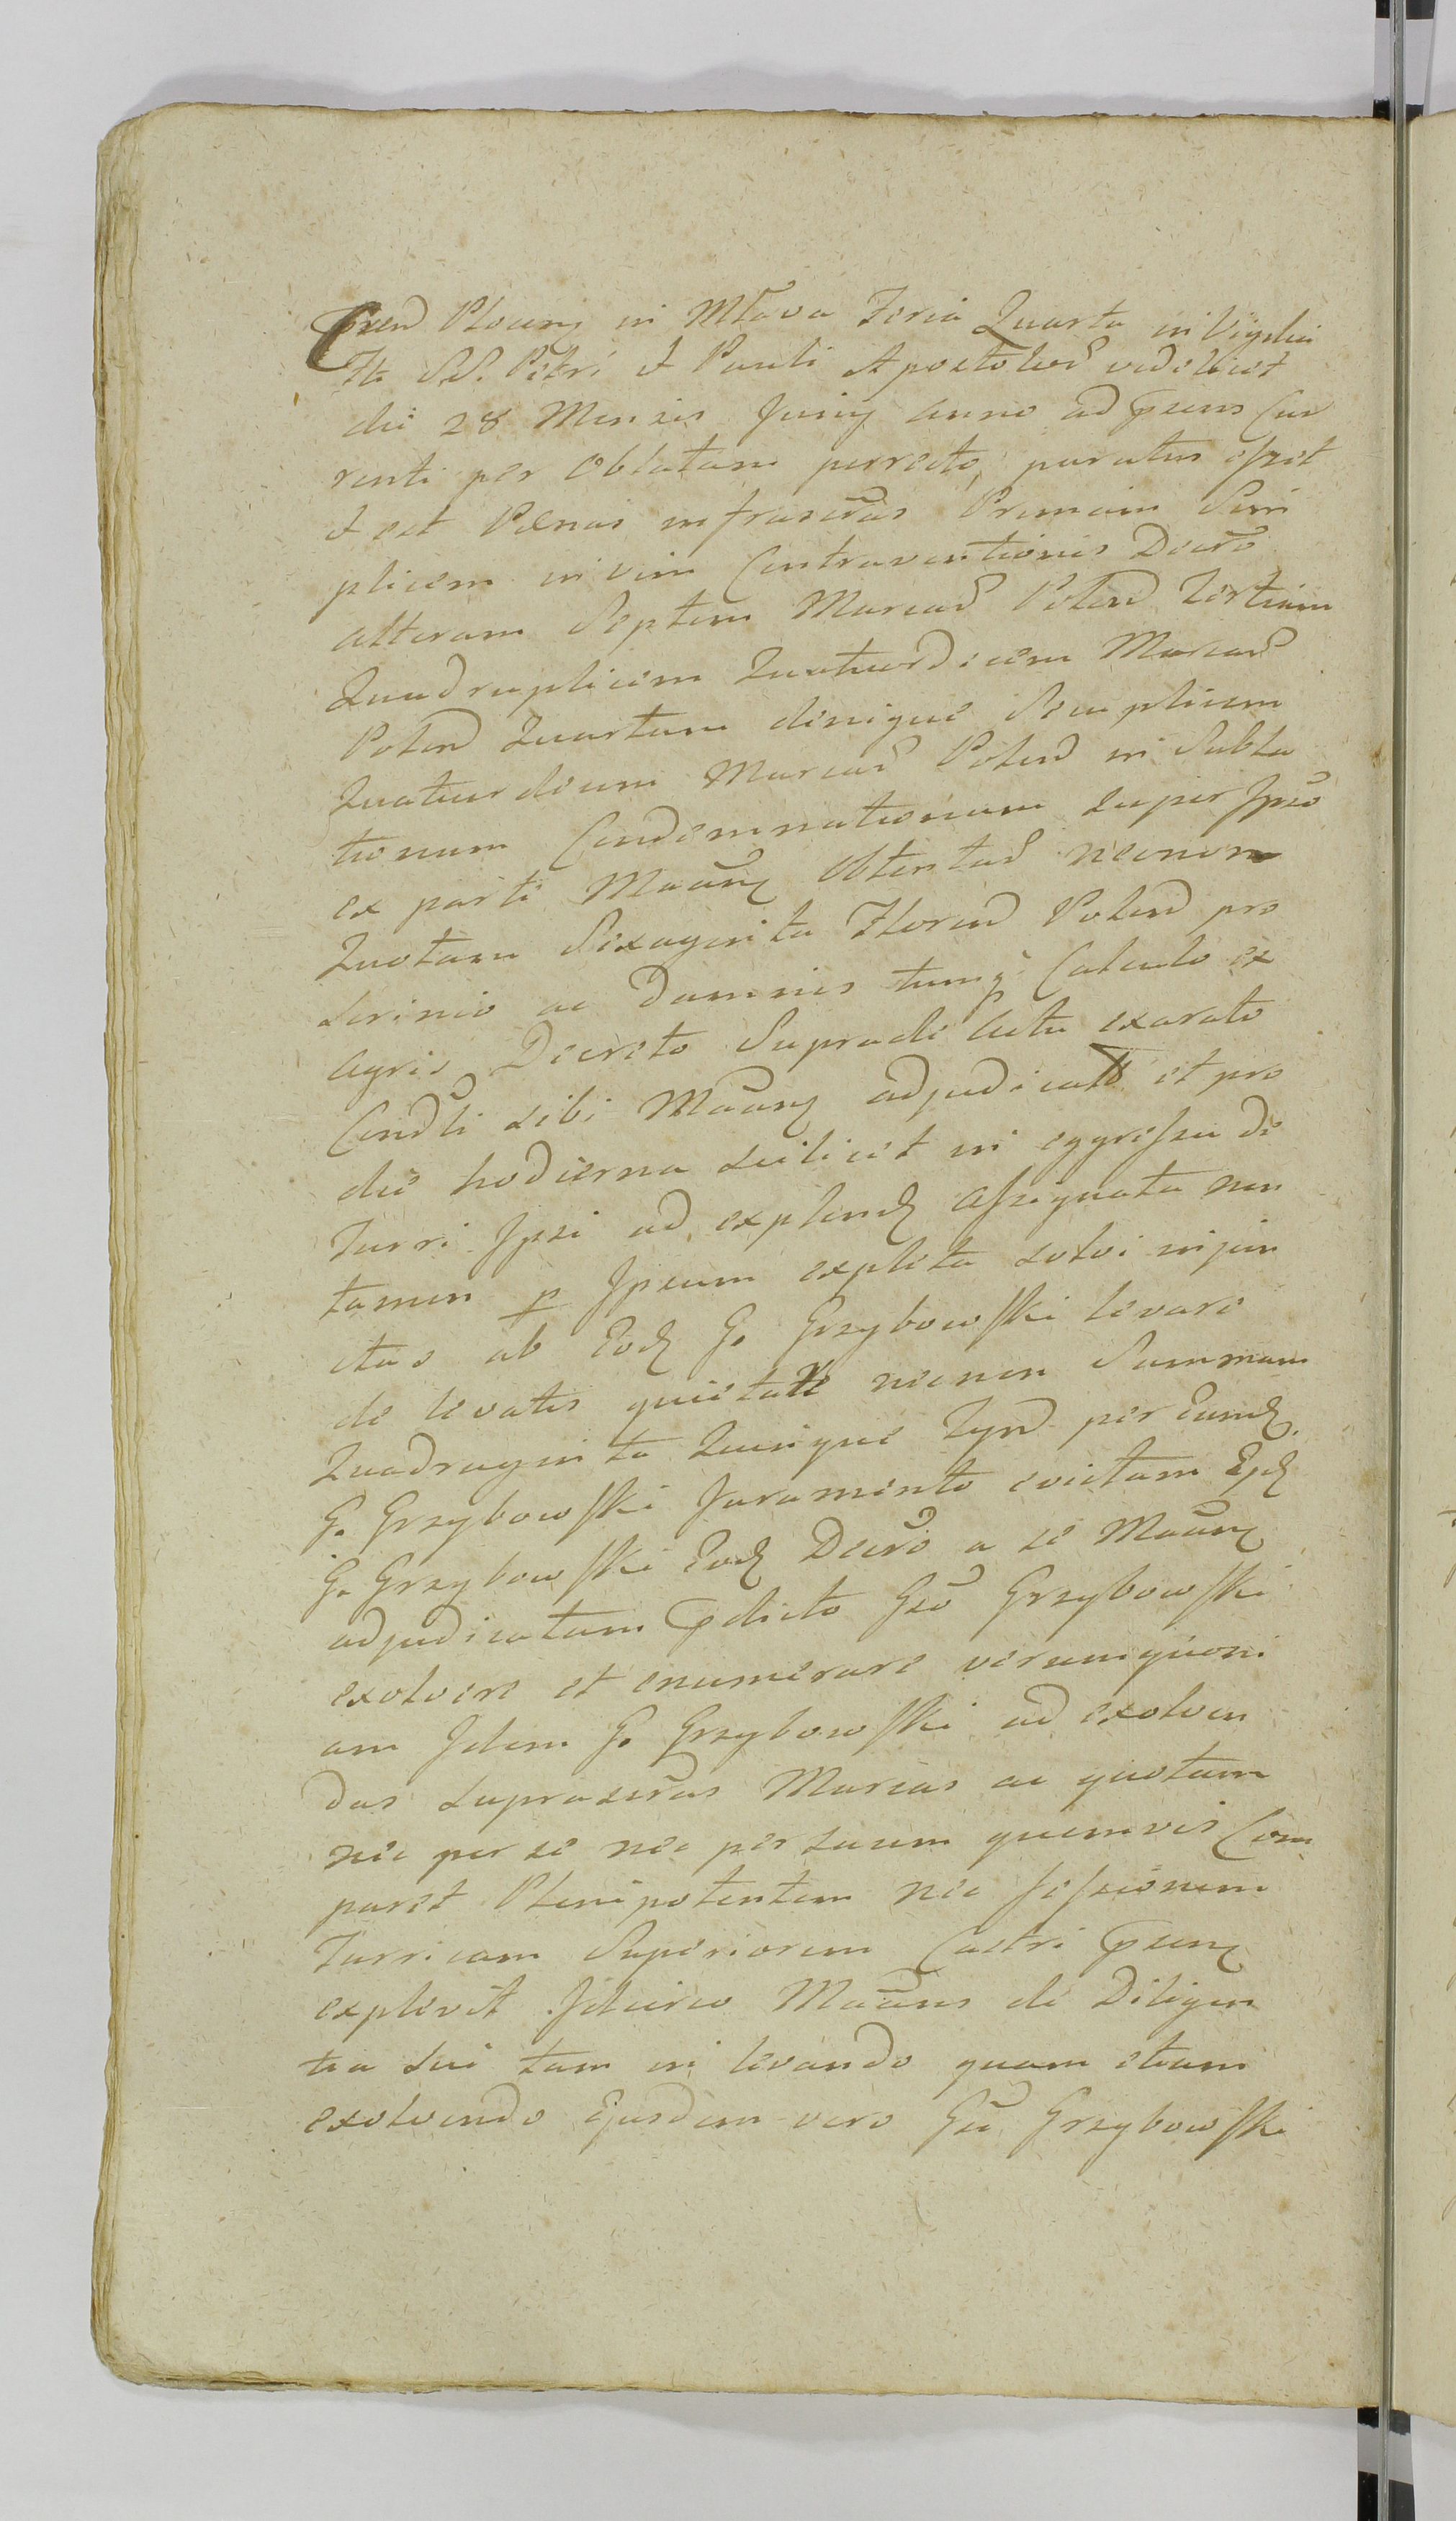 Crend Ploceng in Mława Feria Quarta in Vigilia
Fti SS. Petri & Pauli Apostolord videlicet
die 28 Mensis Junij Anno ad psens Cur
renti per Oblatam perrecto, paratus eszet
& est Pænas infrascras Primam Sim
plicem in vim Contraventionis Decro
alteram Septem Marcard Polend Tertiam
Quadruplicem Quatuordicem Marcard
Polend Quartam denique Sem plicem
Quatuordecim Marcard Polend in Subla
tionem Condemnationum super Ipso
ex parte Macang Obtentard necnon
Quotam Sexaginta Florend Polend pro
Scrinio ac Damnis tumq Calculo ex
Agris Decreto Supradi Actu exarato
Condli sibi Macang adjudicato et pro
die hodierna scilicet in egreszu de
Turri Ipsi ad explend Aszignata non
tamen p Ipsum expleta solvi injun
ctas ab Eod G. Grzybowski levare
de levatis quietare necnon Summam
Quadraginta Quinque Tynd per Eumd
G. Grzybowski Juramento evictam Ejd
G. Grzybowski Eod Decro a se Macang
adjudicatam pdicto Gso Grzybowski
exolvere et enumerare verumquoni
am Idem G. Grzybowski ad exolven
das suprascras Marcas ac quotam
nec per se nec per suum quemvis Com
paret Plenipotentem nec Seszionem
Turricam Superiorem Castri psens
explevit Idcirco Macans de Diligen
tia sui tam in levando quam etiam
exolvendo Ejusdem vero Gsi Grzybowski